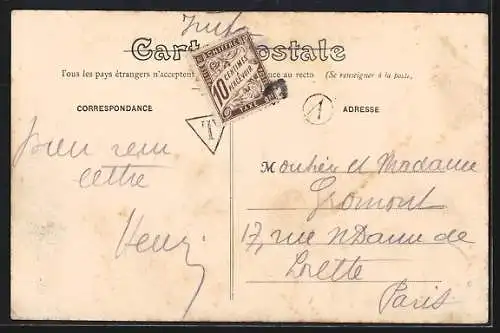 Carte Postale
Tous les pays étrangers n'acceptent
au recto (Se renseigner à la poste.
CHIFFRE
10 CENTIMES
À PERCEVOIR
TAXE
T
A
CORRESPONDANCE
ADRESSE
Bien reçu
lettre
Henri
Monsieur et Madame
Gromont
17, rue N Dame de
Lorette
Paris